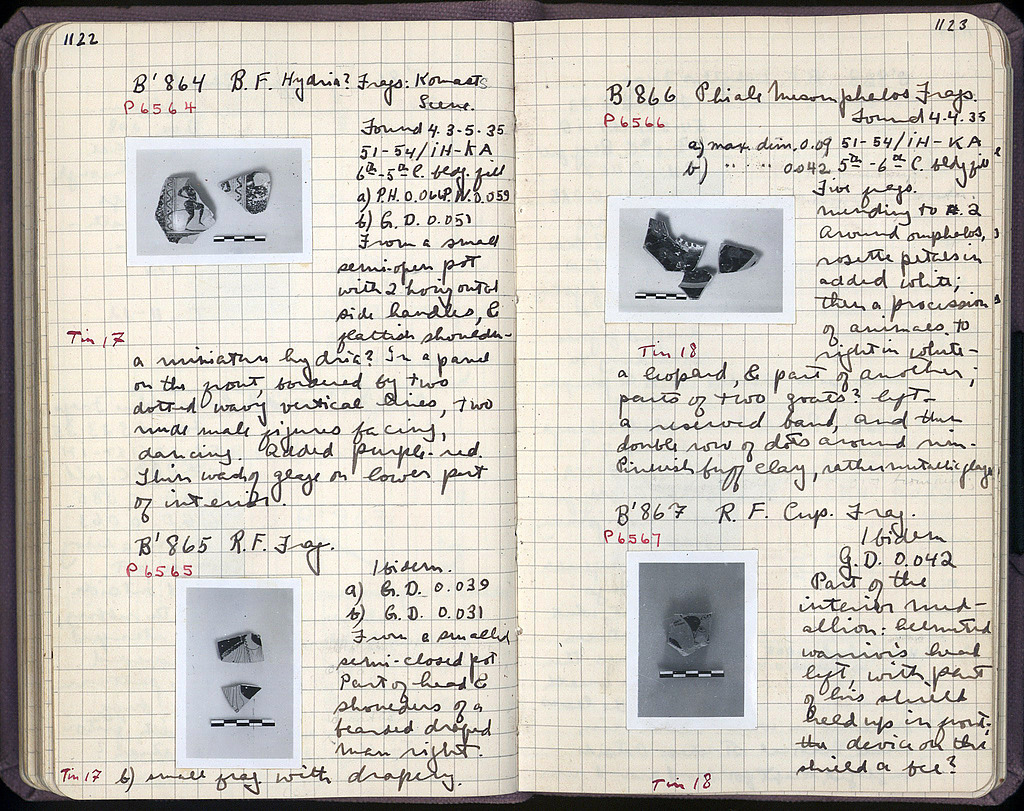 1122
B'864 B.F. Hydria? Frags. Komasts
Scene.
P6564
Found 4.3-5.35
51-54/ΙΗ-ΚΑ
6th-5th C. bldg. fill
a) P.H. 0.064 P.W.D. 0.059
b) G.D. 0.051
From a small
semi-open pot
with 2 horizontal
side handles, &
flattish shoulder-
Tin 17
a miniature hydria? In a panel
on the front, bordered by two
dotted wavy vertical lines, two
nude male figures facing,
dancing. Added purple-red.
Thin wash of glaze on lower part
of interior.
B'865 R.F. Frag.
P6565
Ibidem.
a) G.D. 0.039
b) G.D. 0.031
From a smallish
semi-closed pot
Part of head &
shoulders of a
bearded draped
man right.
Tin 17 b) small frag with drapery.
1123
B'866 Phiale Mesomphalos Frags.
P6566
Found 4-4.35
a) max. dim. 0.09 51-54/ΙΗ-ΚΑ
b) " " " 0.042 5th-6th C. bldg fill
Five frags.
mending to 2
Around omphalos,
rosette petals in
added white;
then a procession
of animals to
right in white-
Tin 18
a leopard, & part of another;
parts of two goats? left-
a reserved band, and then
double row of dots around rim.
Pinkish buff clay, rather metallic glaze
B'867 R.F. Cup. Frag.
P6567
Ibidem
G.D. 0.042
Part of the
interior med-
allion: helmeted
warrior's head
left, with part
of his shield
held up in front;
the device on the
shield a bee?
Tin 18